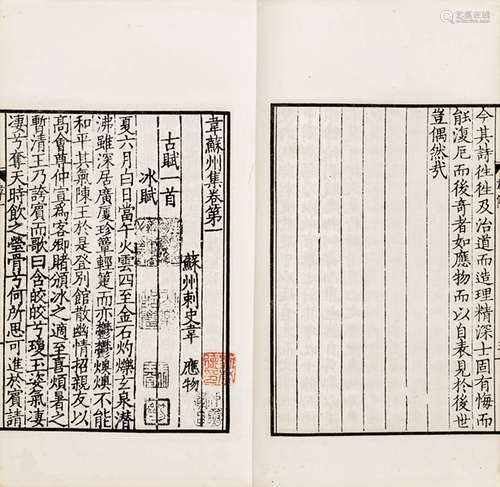 今其詩往往及治道而造理精深士固有悔而
能復厄而後奇者如應物而以自表見於後世
豈偶然㦲
韋蘇州集卷第一
蘇州刺史韋 應物
古賦一首
冰賦
夏六月白日當午火雲四至金石灼爍玄泉潜
沸雖深居廣厦珍簟輕箑而亦鬱鬱燠燠不能
和平其氣陳王於是登別館散幽情招親友以
髙會尊仲宣爲客卿睹頒冰之適至喜煩暑之
暫清王乃誇賓而歌曰含皎皎兮瓊玉姿氣淒
凄兮奪天時飲之瑩骨兮何所思可進於賓請